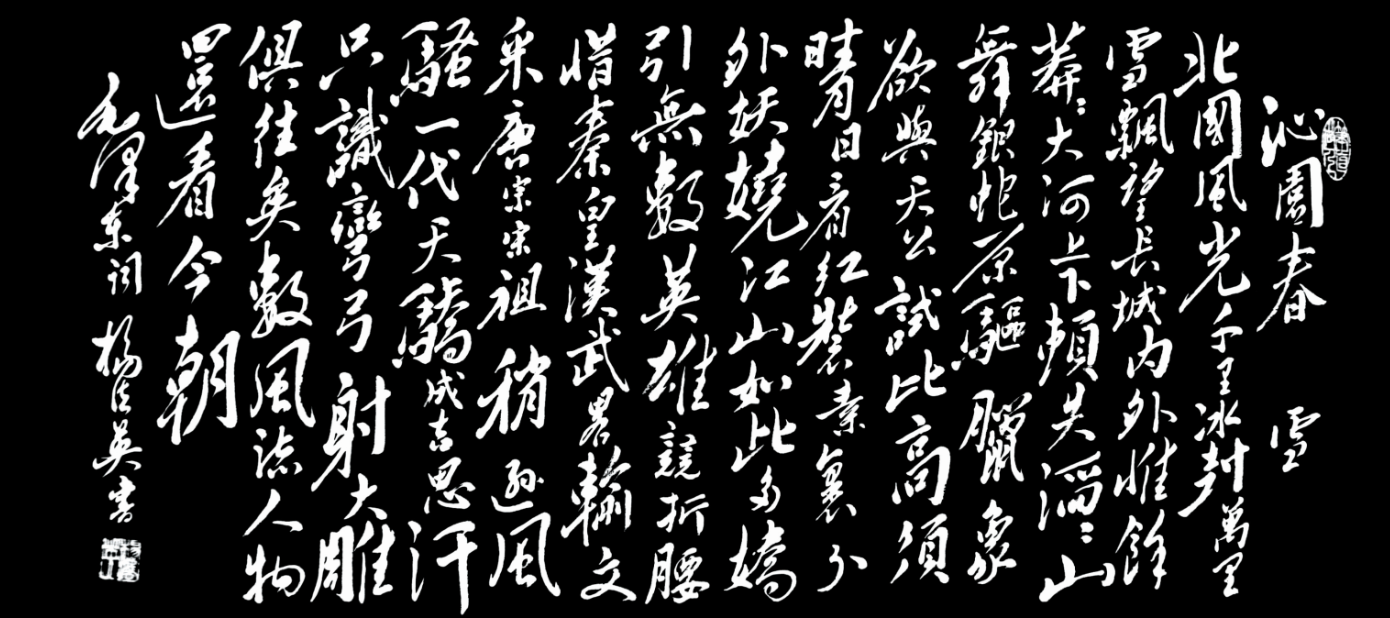 沁園春 雪
北國風光千里冰封萬里
雪飄望長城內外惟餘
莽〻大河上下頓失滔〻山
舞銀蛇原驅臘象
欲與天公試比高須
晴日看紅裝素裹分
外妖嬈江山如此多嬌
引無數英雄競折腰
惜秦皇漢武畧輸文
采唐宗宋祖稍遜風
騷一代天驕成吉思汗
只識彎弓射大雕
俱往矣數風流人物
還看今朝
毛澤東詞 楊英書